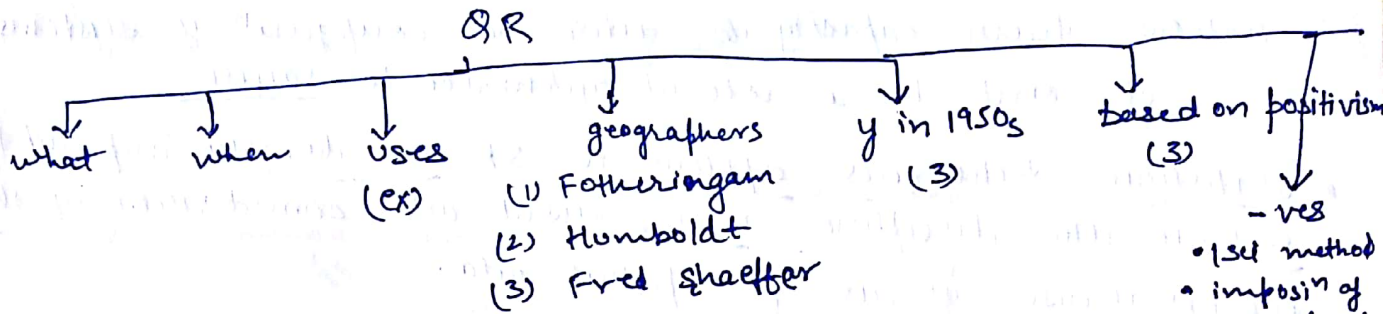 QR
what
when
uses
(ex)
geographers
(1) Fotheringam
(2) Humboldt
(3) Fred Shaeffer
y in 1950s
(3)
based on positivism
(3)
- ves
• 1 sci method
• imposin of